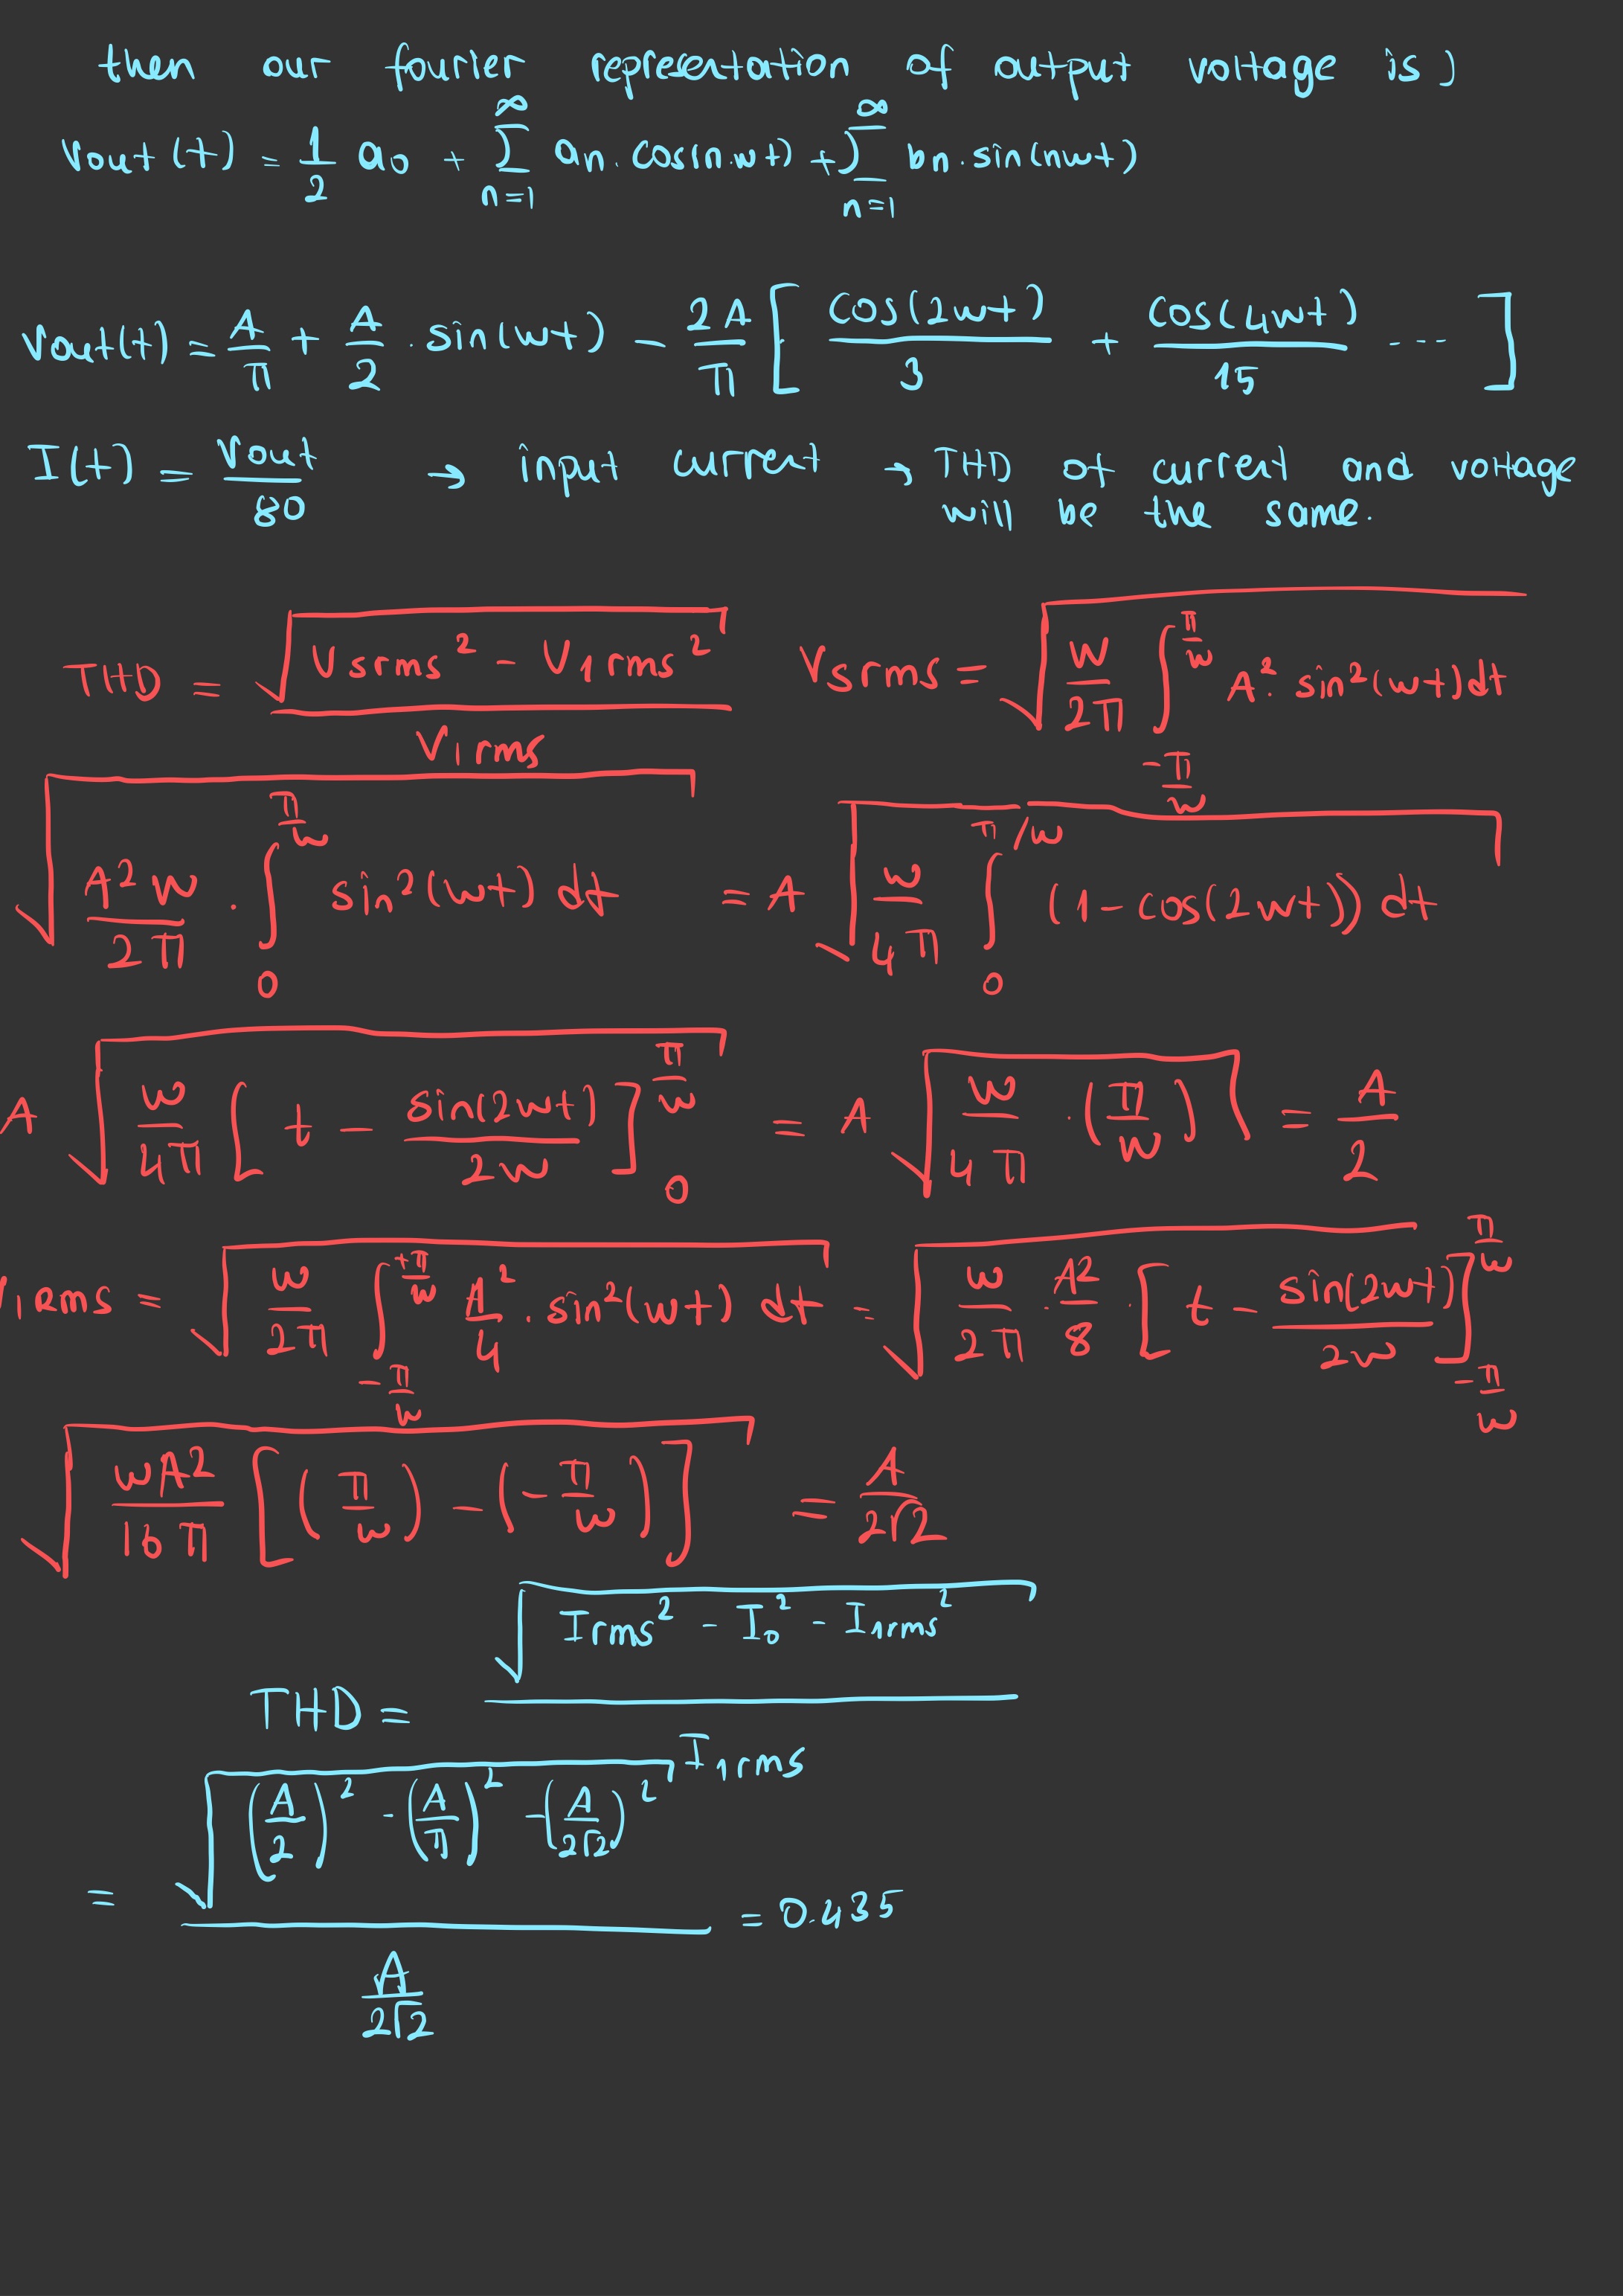 then our fourier representation of output voltage is;
Vout(t) = 1/2 a0 + ∑_{n=1}^{∞} an.cos(n.wt) + ∑_{n=1}^{∞} bn.sin(nwt)
Vout(t) = A/π + A/2 .sin(wt) - 2A/π [ cos(2wt)/3 + cos(4wt)/15 ---- ]
I(t) = Vout/80 → input current → THD of current and voltage
will be the same.
THD = √(Vsrms² - V1rms²) / V1rms    Vsrms = √( w/2π ∫_{-π/w}^{π/w} A². sin²(wt)dt
√( A²w/2π . ∫_{0}^{π/w} sin²(wt) dt ) = A √( w/4π ∫_{0}^{π/w} (1 - cos(2wt)) dt )
A √( w/4π ( t - sin(2wt)/2w ]_{0}^{π/w} ) = A √( w/4π . (π/w) ) = A/2
V1RMS = √( w/2π ∫_{-π/w}^{+π/w} A²/4 . sin²(wt) dt ) = √( w/2π . A²/8 . [ t - sin(2wt)/2w ]_{-π/w}^{π/w}
√( wA²/16π [ (π/w) - (-π/w) ] ) = A/2√2
THD = √( Irms² - I0² - I1rms² ) / I1rms
= √( (A/2)² - (A/π)² - (A/2√2)² ) / (A/2√2) = 0.435